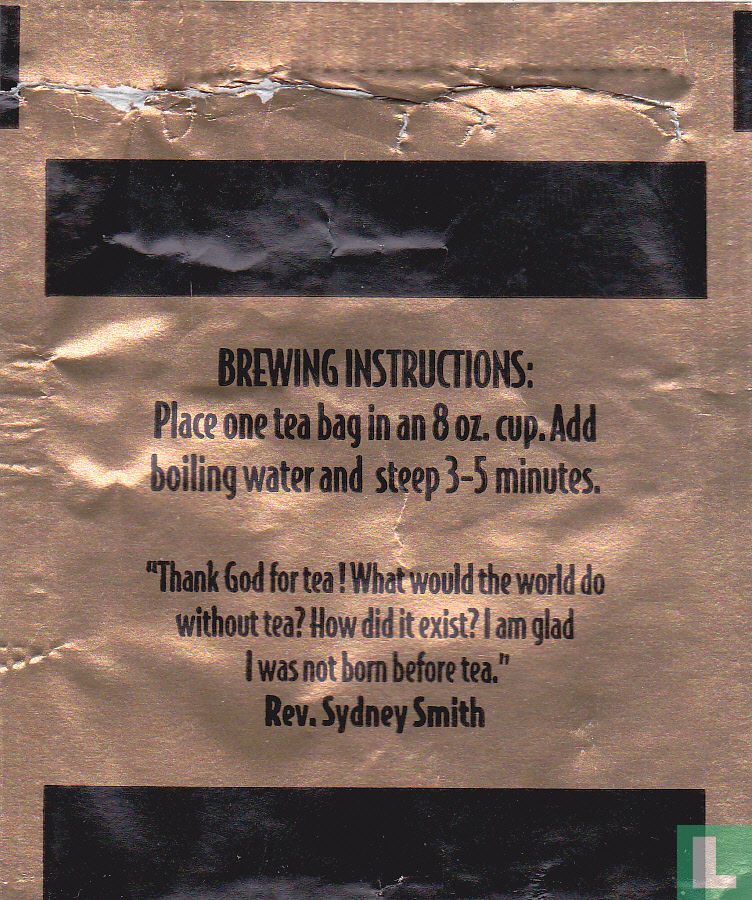 BREWING INSTRUCTIONS:
Place one tea bag in an 8 oz. cup. Add
boiling water and steep 3-5 minutes.
"Thank God for tea! What would the world do
without tea? How did it exist? I am glad
I was not born before tea."
Rev. Sydney Smith
L